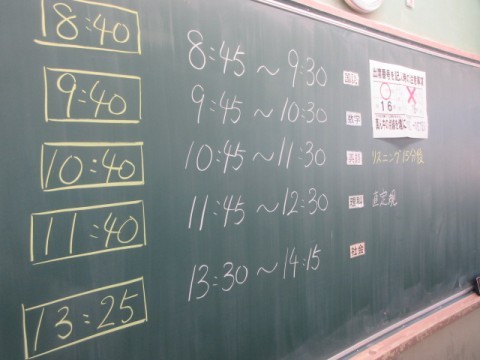 8:40 8:45 ~ 9:30 国語
9:40 9:45 ~ 10:30 数学
10:40 10:45 ~ 11:30 英語 リスニング 15分後
11:40 11:45 ~ 12:30 理科
13:25 13:30 ~ 14:15 社会
出席番号を記入時の注意事項
○ ×
16